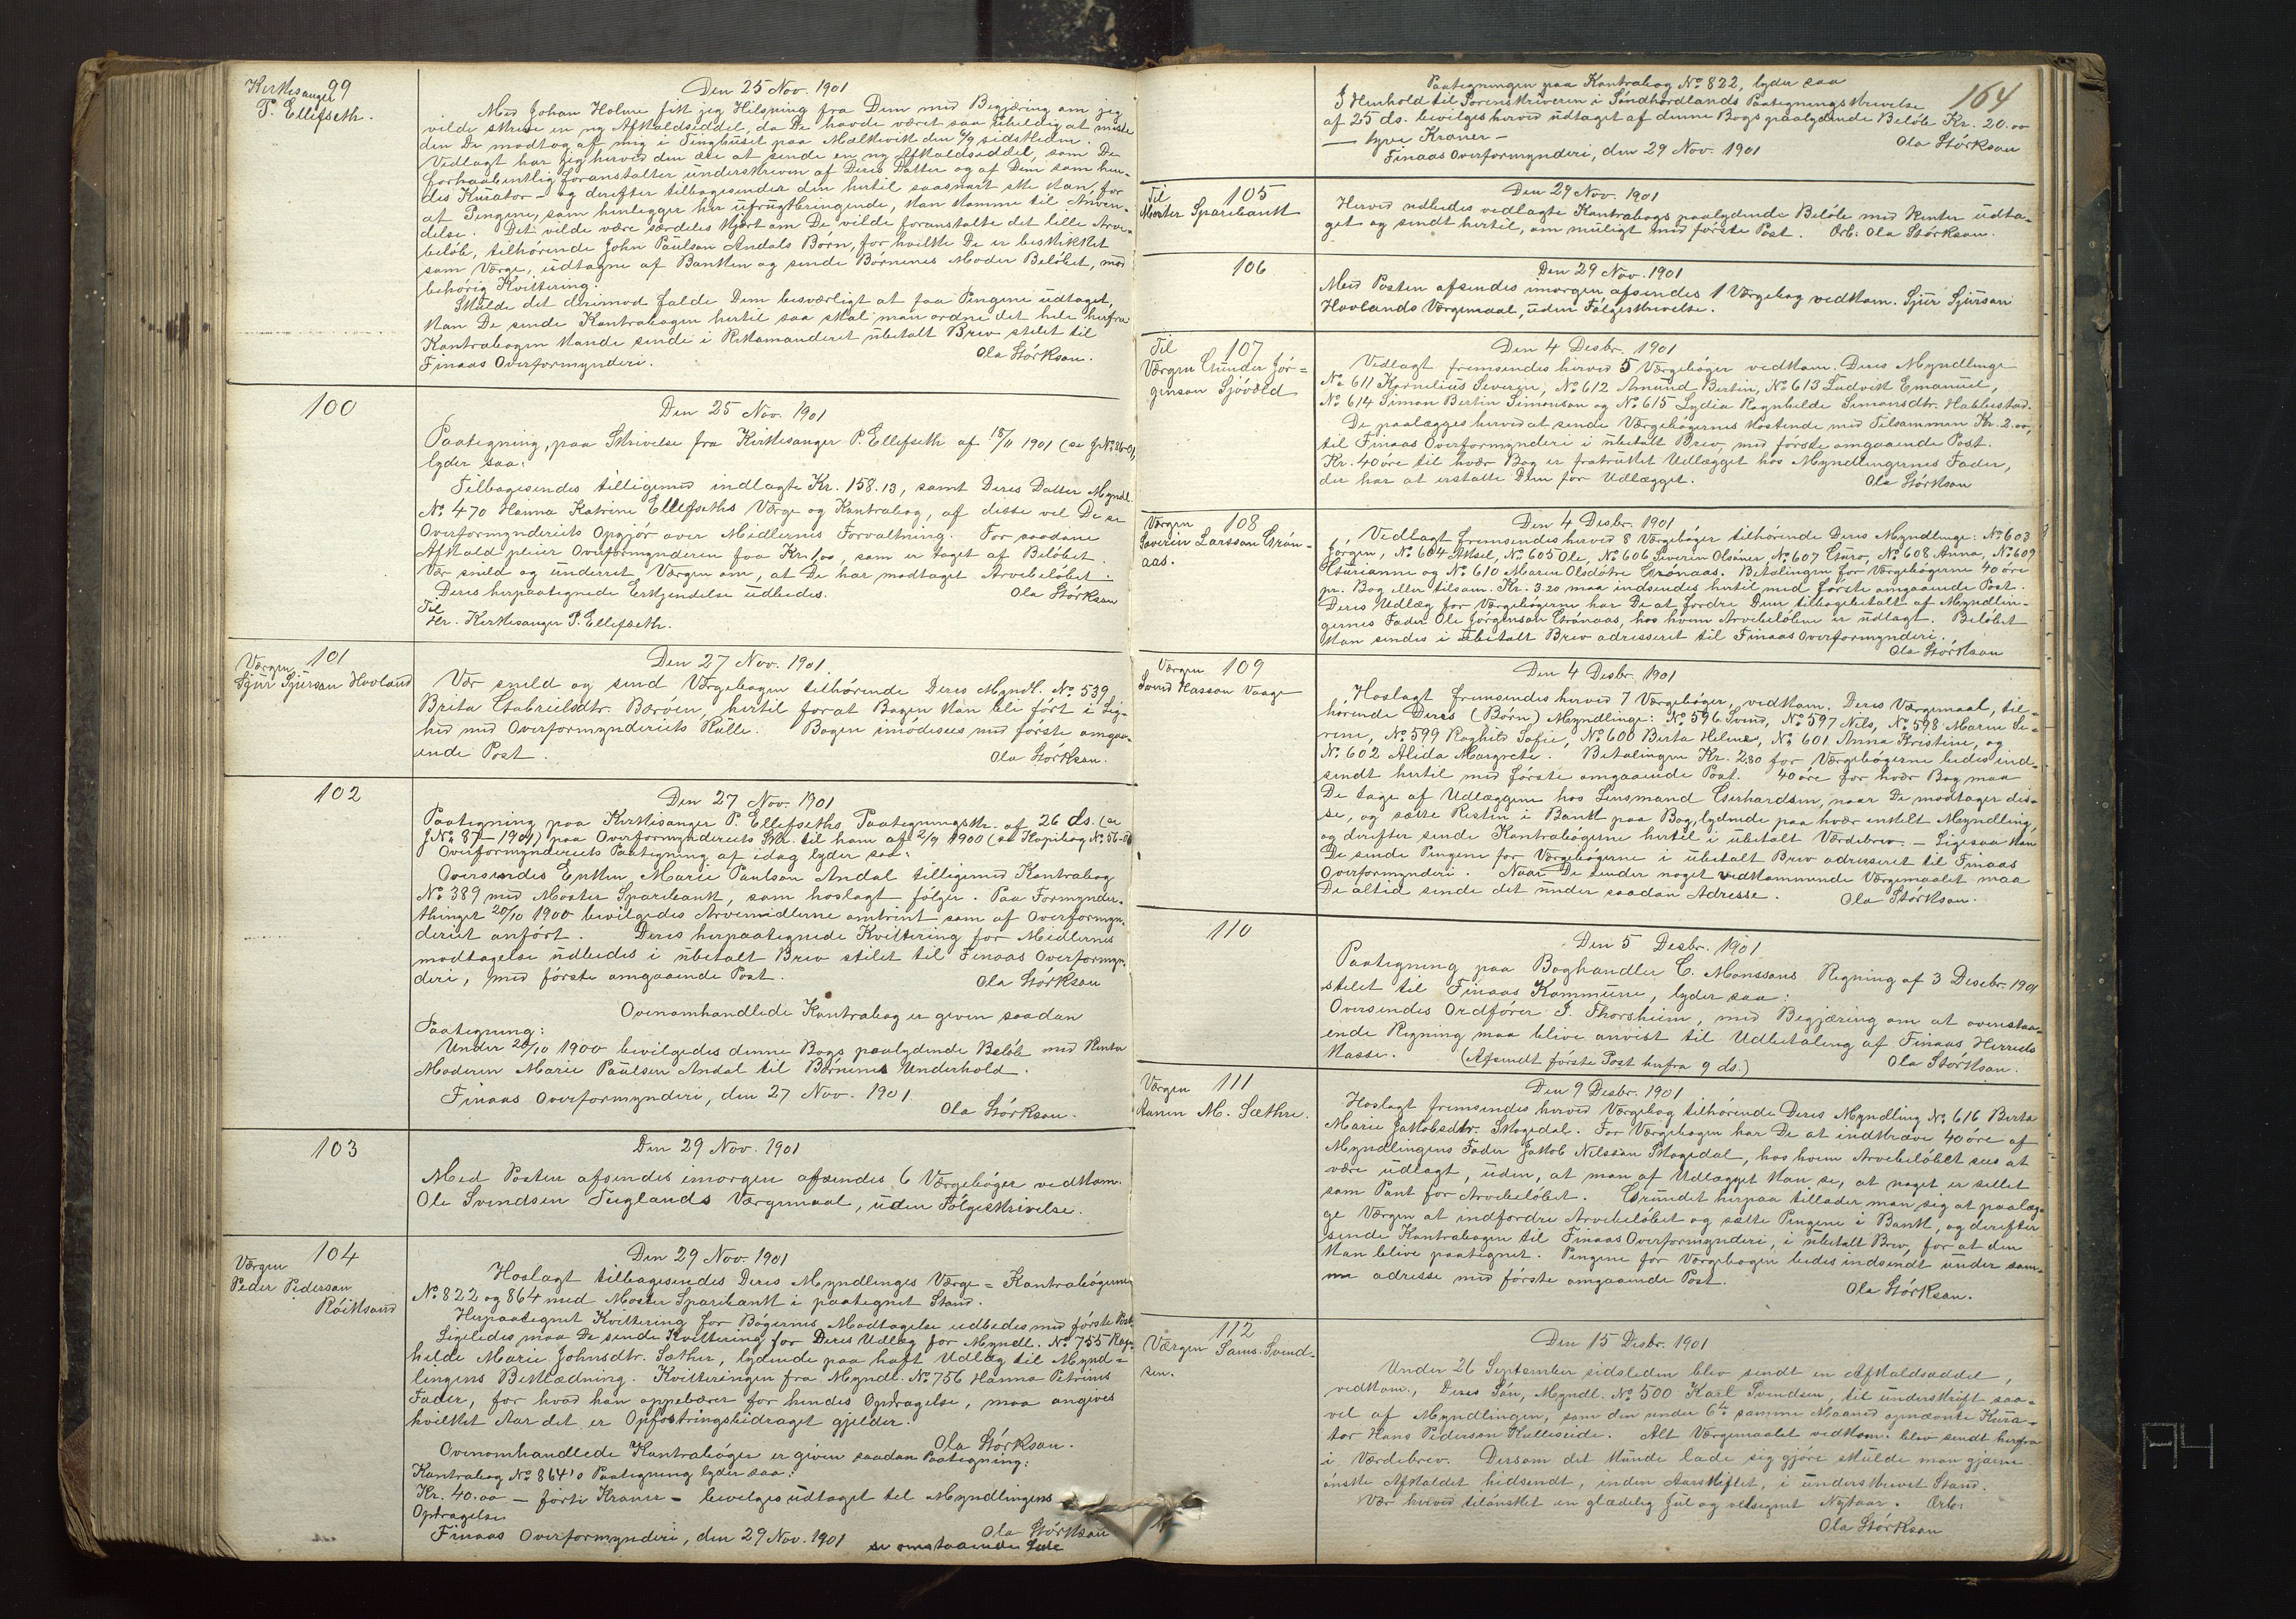 99
Kirkesanger
P. Ellefseth.
Den 25 Nov. 1901
Med Johan Holme fik jeg Hilsning fra Dem med Begjæring om jeg
vilde skrive en ny Afkaldseddel, da De havde været saa uheldig at miste
den De modtog af mig i Tinghuset paa Mælkevik den 6/9 sidstleden.
Vedlagt har jeg herved den ære at sende en ny Afkaldseddel, som De
forhaabentlig foranstalter underskreven af Deres Datter og af Dem som hen-
des Kurator – og derefter tilbagesender den hertil saasnart ske kan, for
at Pengene, som henlegger her ufrugtbringende, kan komme til Anven-
delse. Det vilde være særdeles kjært om De vilde foranstalte det lille Arve-
beløb, tilhørende John Paulson Andals Børn, for hvilke De er beskikket
som Værge, udtagne af Banken og sende Børnenes Moder Beløbet, mod
behörig Kvittering.
Skulde det derimod falde Dem besværligt at faa Pengene udtaget,
kan De sende Kontrabogen hertil saa skal man ordne det hele herfra
Kontrabogen kande sende i Rekomanderet ubetalt Brev stilet til
Finaas Overformynderi. Ola Störkson.
100
Den 25 Nov. 1901
Paategning, paa Skrivelse fra Kirkesanger P. Ellefseth af 18/11 1901 (se J.No 86-01),
lyder saa:
Tilbagesendes tilligemed indlagte Kr. 158.13, samt Deres Datter Myndl.
No 470 Hanna Katrine Ellefseths Værge og Kontrabog, af disse vil De se
Overformynderiets Opgjör over Midlernes Forvaltning. For saadane
Afkald pleier Overformynderen faa Kr. 1,00, som er taget af Beløbet.
Vær snild og underret Værgen om, at De har modtaget Arvebeløbet.
Deres herpaategnede Erkjendelse udbedes. Ola Störkson
Til
Hr. Kirkesanger P. Ellefseth.
101
Værgen
Sjur Sjurson Hovland
Den 27 Nov. 1901
Vær snild og send Værgebogen tilhörende Deres Myndl. No 539
Brita Gabrielsdtr. Bærven, hertil forat Bogen kan bli fört i Lig-
hed med Overformynderiets Rulle. Bogen imödesees med förste omgaa-
ende Post. Ola Störkson.
102
Den 27 Nov. 1901
Paategning paa Kirkesanger P. Ellefseths Paategningsskr. af 26 ds. (se
J.No 87–1901) paa Overformynderiets Skr. til ham af 2/9 1900 (se Kopibog No 56-00
Overformynderiets Paategning af idag lyder saa:
Oversendes Enken Marie Paulson Andal tilligemed Kontrabog
No 389 med Moster Sparebank, som hoslagt fölger. Paa Formynder-
thinget 20/10 1900 bevilgedes Arvemidlerne omtrent som af Overformyn-
deriet anfört. Deres herpaategnede Kvittering for Midlernes
modtagelse udbedes i ubetalt Brev stilet til Finaas Overformyn-
deri, med förste omgaaende Post. Ola Störkson
Ovenomhandlede Kontrabog er given saadan
Paategning:
Under 20/10 1900 bevilgedes denne Bogs paalydende Beløb med Renter
Moderen Marie Paulsen Andal til Börnenes Underhold.
Finaas Overformynderi, den 27 Nov. 1901
Ola Störkson.
103
Den 29 Nov. 1901
Med Posten afsendes imorgen afsendes 6 Værgebøger vedkom.
Ole Svendsen Tuglands Værgemaal, uden Fölgeskrivelse.
104
Værgen
Peder Pederson
Röiksund
Den 29 Nov. 1901
Hoslagt tilbagesendes Deres Myndlinges Værge = Kontrabögerne
No 822 og 864 med Moster Sparebank i paategnet Stand.
Herpaategnet Kvittering for Bögernes Modtagelse udbedes med förste Post.
Ligeledes maa De sende Kvittering for Deres Udlæg for Myndl. No 755 Rag-
hilde Marie Johnsdtr. Sæther, lydende paa haft Udlæg til Mynd-
lingens Beklædning. Kvitteringen fra Myndl. No 756 Hanna Petrines
Fader, for hvad han oppebærer for hendes Opdragelse, maa angives
hvilket Aar det er Opfostringsbidraget gjelder.
Ola Störkson.
Ovenomhandlede Kontrabøger er given saadan Paategning:
Kontrabog No 864's Paategning lyder saa:
Kr. 40.00 – forti Kroner – bevilges udtaget til Myndlingens
Opdragelse
Finaas Overformynderi, den 29 Nov. 1901 Ola Störkson
se omstaaende Side
164
Paategningen paa Kontrabog No 822, lyder saa
I Henhold til Sorenskriveren i Söndhordlands Paategningsskrivelse
af 25 ds. bevilges herved udtaget af denne Bogs paalydende Beløb Kr. 20.00
– tyve Kroner – Ola Störkson
Finaas Overformynderi, den 29 Nov. 1901
105
Til
Moster Sparebank
Den 29 Nov. 1901
Herved udbedes vedlagte Kontrabogs paalydende Beløb med Renter udta-
get og sendt hertil, om muligt med förste Post. Erb: Ola Störkson.
106
Den 29 Nov. 1901
Med Posten afsendes imorgen afsendes 1 Værgebog vedkom. Sjur Sjurson
Hovlands Værgemaal, uden Fölgeskrivelse.
107
Til
Værgen Gunder Jör-
genson Sjövold
Den 4 Desbr. 1901
Vedlagt fremsendes herved 5 Værgebøger vedkom. Deres Myndlinge
No 611 Kornelius Severin, No 612 Amund Bertin, No 613 Ludvik Emanuel,
No 614 Simon Bertin Simonson og No 615 Lydia Ragnhilde Simonsdtr. Habbestad.
De paalægges herved at sende Værgebögernes Kostende med Tilsammen Kr. 2.00,
til Finaas Overformynderi i ubetalt Brev, med förste omgaaende Post.
Kr. 40 öre til hvær Bog er fratrukket Udlægget hos Myndlingernes Fader,
der har at erstatte Dem for Udlægget. Ola Störkson
108
Værgen
Severin Larsson Grön-
aas.
Den 4 Desbr. 1901
Vedlagt fremsendes herved 8 Værgebøger tilhörende Deres Myndlinge: No 603
Jörgen, No 604 Aksel, No 605 Ole, No 606 Severin Olsöner, No 607 Guro, No 608 Anna, No 609
Gurianne og No 610 Maren Olsdötre Grönaas. Betalingen for Værgebögerne 40 öre
pr. Bog eller tilsam. Kr. 3.20 maa indsendes hertil med förste omgaaende Post.
Deres Udlæg for Værgebögerne har De at fordre Dem tilbagebetalt af Myndlin-
gernes Fader Ole Jörgenson Grönaas, hos hvem Arvebeløbene er udlagt. Beløbet
kan sendes i ubetalt Brev adresseret til Finaas Overformynderi.
Ola Störkson
109
Værgen
Svend Hasson Vaage
Den 4 Desbr. 1901
Hoslagt fremsendes herved 7 Værgebøger, vedkom. Deres Værgemaal, til-
hörende Deres (Børn) Myndlinge: No 596 Svend, No 597 Nils, No 598 Maren Se-
rine, No 599 Raghild Sofie, No 600 Berta Helene, No 601 Anna Kristine, og
No 602 Alida Margrete. Betalingen Kr. 2.80 for Værgebögerne bedes ind-
sendt hertil med förste omgaaende Post. 40 öre for hvær Bog maa
De tage af Udlæggene hos Lensmand Gerhardsen, naar De modtager dis-
se, og sætte Resten i Bank paa Bog, lydende paa hvær enkelt Myndling,
og derefter sende Kontrabögerne hertil i ubetalt Værdebrev. – Ligesaa kan
De sende Pengene for Værgebögerne i ubetalt Brev adresseret til Finaas
Overformynderi. Naar De sender noget vedkommende Værgemaalet maa
De altid sende det under saadan Adresse. Ola Störkson.
110
Den 5 Desbr. 1901
Paategning paa Boghandler C. Monssons Regning af 3 Desebr. 1901
stilet til Finaas Kommune, lyder saa:
Oversendes Ordförer J. Thorsheim, med Begjæring om at ovenstaa-
ende Regning maa blive anvist til Udbetaling af Finaas Herreds
Kasse. (Afsendt förste Post herfra 9 ds.) Ola Störkson.
111
Værgen
Aanen M. Sæthre.
Den 9 Desbr. 1901
Hoslagt fremsendes herved Værgebog tilhörende Deres Myndling No 616 Berta
Marie Jakobsdtr. Skogedal. For Værgebogen har De at indkræve 40 öre af
Myndlingens Fader Jakob Nilsson Skogedal, hos hvem Arvebeløbet sees at
være udlagt, uden, at man af Udlægget kan se, at noget er stillet
som Pant for Arvebeløbet. Grundet herpaa tillader man sig at paalæg-
ge Værgen at indfordre Arvebeløbet og sætte Pengene i Bank, og derefter
sende Kontrabogen til Finaas Overformynderi, i ubetalt Brev, for at den
kan blive paategnet. Pengene for Værgebogen bedes indsendt under sam-
me adresse med förste omgaaende Post. Ola Störkson.
112
Værgen Sams. Svend-
sen.
Den 15 Desbr. 1901
Under 26 September sidsleden blev sendt en Afkaldsæddel,
vedkom., Deres Sön, Myndl. No 500 Karl Svendsen, til underskrift saa-
vel af Myndlingen, som den under 6te samme Maaned opnævnte Kura-
tor Hans Pederson Kulleseide. Alt Værgemaalet vedkom. blev sendt herfra
i Værdebrev. Dersom det kunde lade sig gjöre skulde man gjærne
önske Afkaldet hidsendt, inden Aarskiftet, i underskrevet Stand.
Vær herved tilönsket en glædelig Jul og velsignet Nytaar. Erb:
Ola Störkson